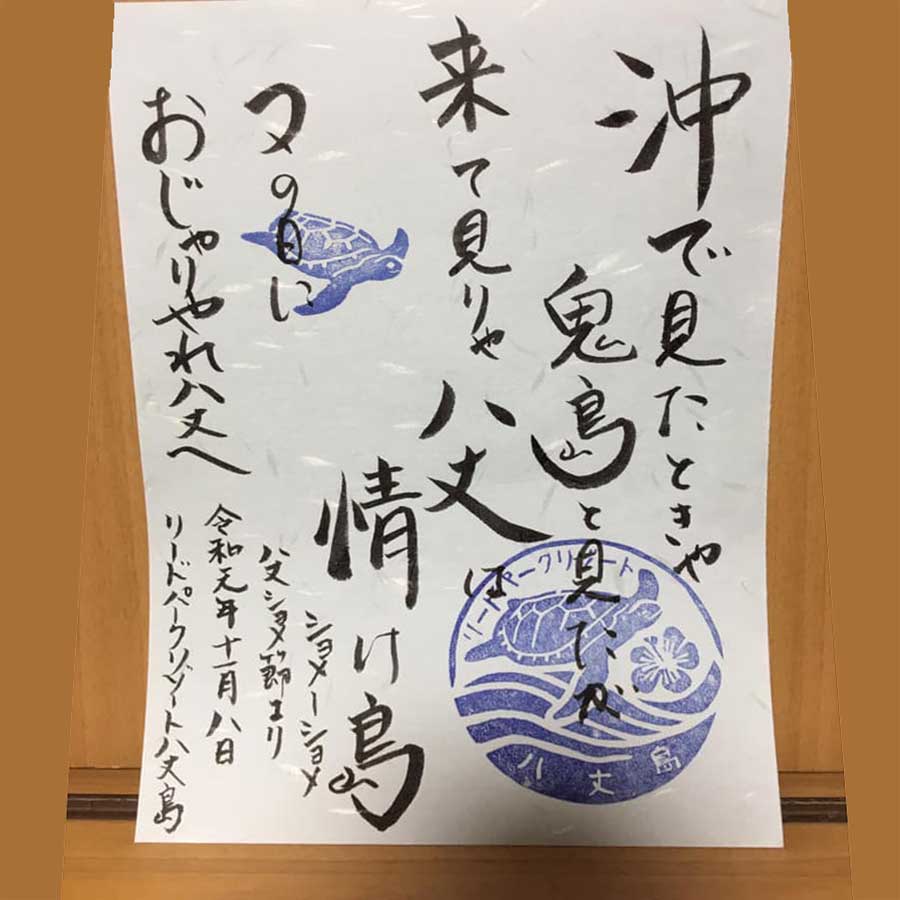 沖で見たときや
鬼島と見たが
来て見りゃ八丈は
情け島
ショメーショメ
八丈ショメ節より
又の日に
おじゃりやれ八丈へ
令和元年十一月八日
リードパークリゾート八丈島
リードパークリゾート
八丈島